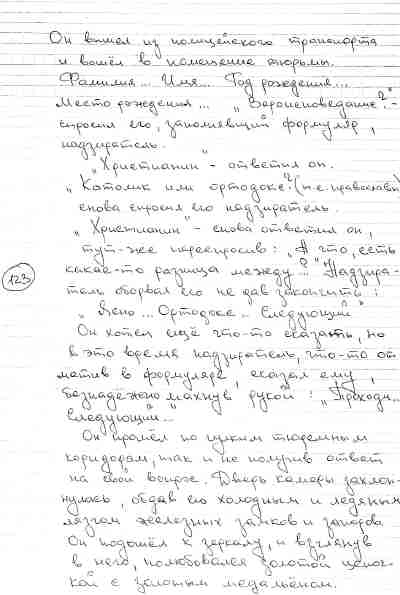 Он вышел из полицейского транспорта
и вошёл в помещение тюрьмы.
Фамилия... Имя... Год рождения...
Место рождения... „Вероисповедание?" -
спросил его, заполнявший формуляр,
надзиратель.
„Христианин" - ответил он.
„Католик или ортодокс?" (т.е. православн)
снова спросил его надзиратель.
„Христианин" - снова ответил он,
тут-же переспросив: „А что, есть
какая-то разница между...?" Надзира-
тель оборвал его не дав закончить:
123
„Ясно... Ортодокс... Следующий"
Он хотел ещё что-то сказать, но
в это время надзиратель, что-то от
метив в формуляре, сказал ему,
безнадёжно махнув рукой: „Проходи...
Следующий"...
Он прошёл по гулким тюремным
коридорам, так и не получив ответ
на свой вопрос. Дверь камеры захлоп-
нулась, обдав его холодным и ледяным
лязгом железных замков и запоров
Он подошёл к зеркалу, и взглянув
в него, полюбовался золотой цепоч-
кой с золотым медальёном.